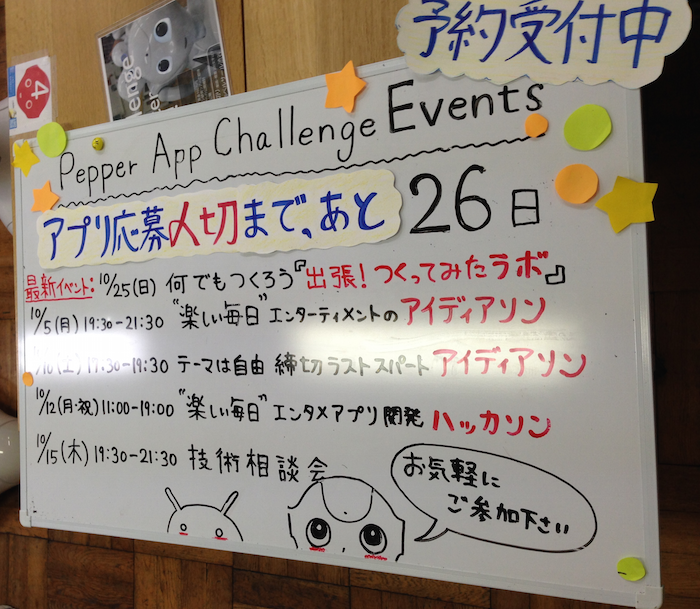 予約受付中
Pepper App Challenge Events
アプリ応募〆切まで、あと 26日
最新イベント: 10/25(日) 何でもつくろう『出張! つくってみたラボ』
10/5(月) 19:30-21:30 "楽しい毎日" エンターティメントの アイディアソン
10/10(土) 17:30-19:30 テーマは自由 締切ラストスパート アイディアソン
10/12(月・祝) 11:00-19:00 "楽しい毎日" エンタメアプリ開発 ハッカソン
10/15(木) 19:30-21:30 技術相談会
お気軽に
ご参加下さい
4